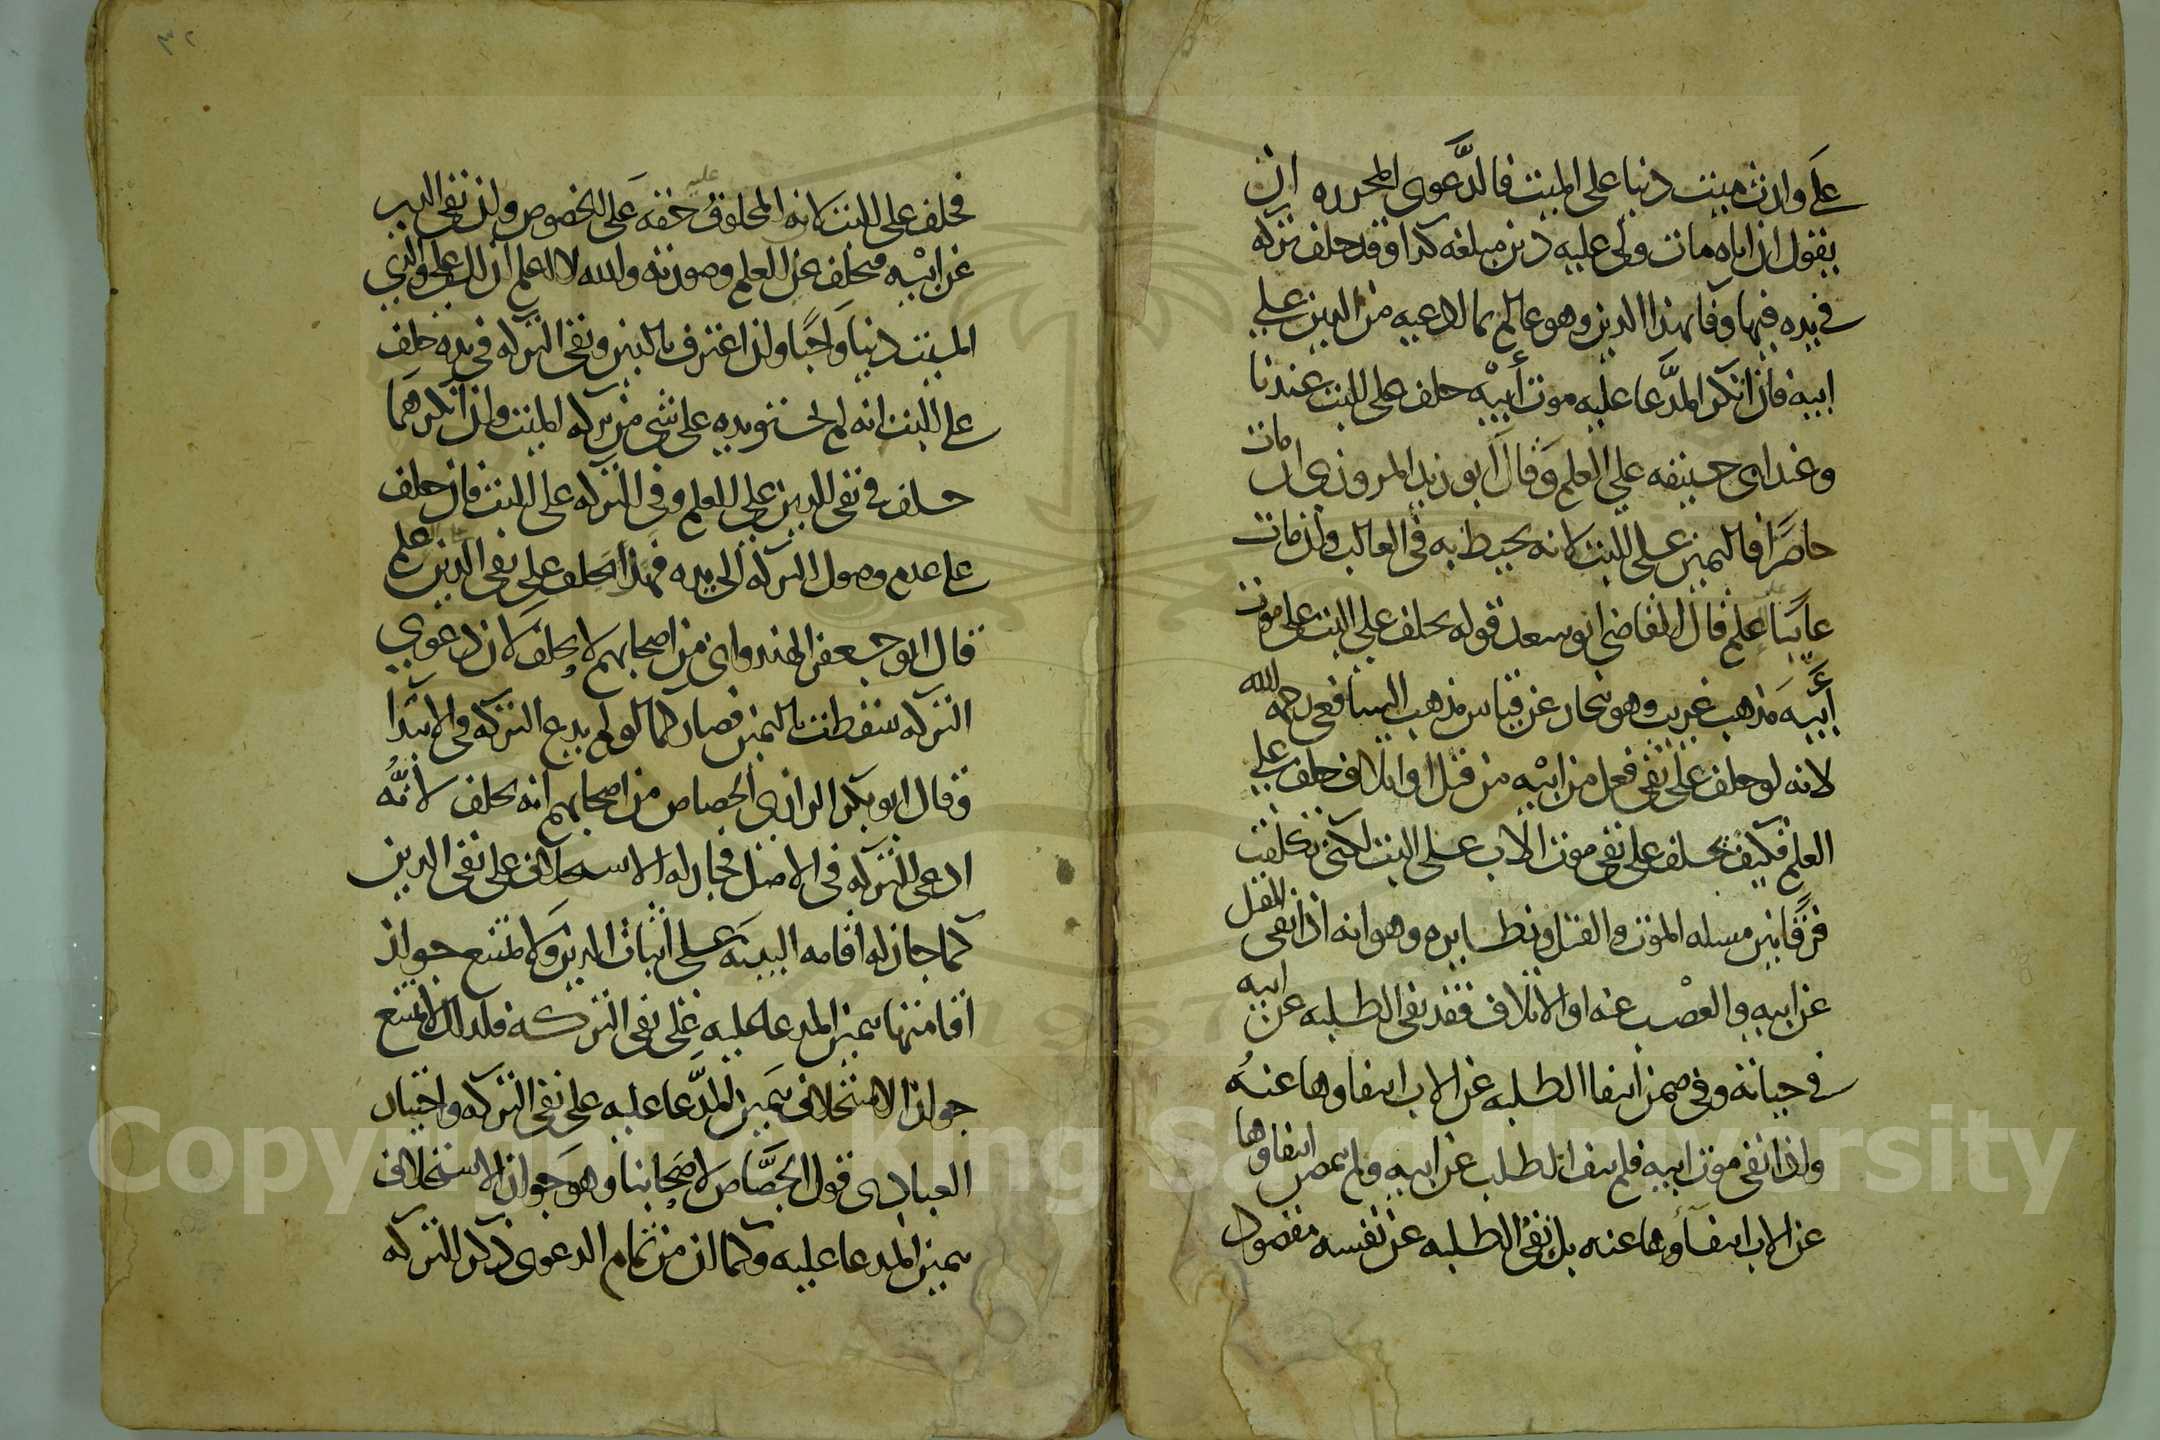 على وارث ميت دينا على الميت فالدَّعوى المحرره ان
يقول ان اباه مات ولى عليه دين مبلغه كذا وقد خلف تركه
في يده فيها وفا بهذا الدين وهو عالم بما لادعيه من الدين على
ابيه فان انكر المدَّعا عليه موت أبيْه حلف على البت عندنا
وعند ابى حنيفه على العلم وَقال ابو زيد المروزي ان مات
حاضرًا فاليمين على البت لانه يحيط به في الغالب وان مات
غايبًا علم قال القاضي ابو سعد قوله يحلف على البت على موت
أبيه مَذهب غريب وهو نجار عن قياس مذهب الشافعى رحمه الله
لانه لو حلف على نفى فعل من ابيْه من قتل او اتلاف حلف على
العلم فكيف يحلف على نفى موت الاب على البت لكنى تكلفت
فرقًا بين مسله الموت والقتل ونظايره وهو انه اذا نفى القتل
عن ابيه والغصْب عنه او الاتلاف فقد نفى الطلبه عن ابيه
في حياته وفى ضمن انتفا الطلبه عن الاب انتفاوها عنهُ
واذا نفى موت ابيه فلم ينف الطلب عن ابيه ولم يتضمن انتفاوها
عن الاب انتفآوها عنه بل نفى الطلبه عن نفسه مقصودا
فحلف على البت لانه المحلوف عليه حقه عَلى الخصوص وان نفى الدين
عن ابيْه فيحلف عن العلم وصورته والله لا اعلم ان لك على والدي
الميت دينا واجبًا وان اعترف بالدين ونفى التركه في يده حلف
على البت انه لم تحتو يده على شى من تركه الميت وان انكرهما
حلف في نفى الدين على العلم وفى التركه على البت فان حلف
على عدم وصول التركه الى يده فهذا يحلف على نفى الدين علم
قال ابو جعفر الهندوانى من اصحابهم لا يحلف لان دعوي
التركه سقطت باليمين فصار كما لو لم يدع التركه فى الابتدا
وقال ابو بكر الرازي الجصاص من اصحابهم انه يحلف لانَّهُ
ادعى التركه فى الاصل فجاز له الاستحلاف على نفى الدين
كما جاز له اقامه البينَه على اثبات الدين وَلا متنع جواز
اقامتها يمين المدعا عليه عَلى نفى التركه فلذلك لا متنع
جواز الاستحلاف يَمين المدَّعا عليه على نفى التركه واختيار
العبادى قول الجصَّاص لاصحابنا وهو جواز الاستحلاف
يمين المدعا عليه وكما ان من تمام الدعوى ذكر التركه
٣٢
Copyright © King Saud University
1957